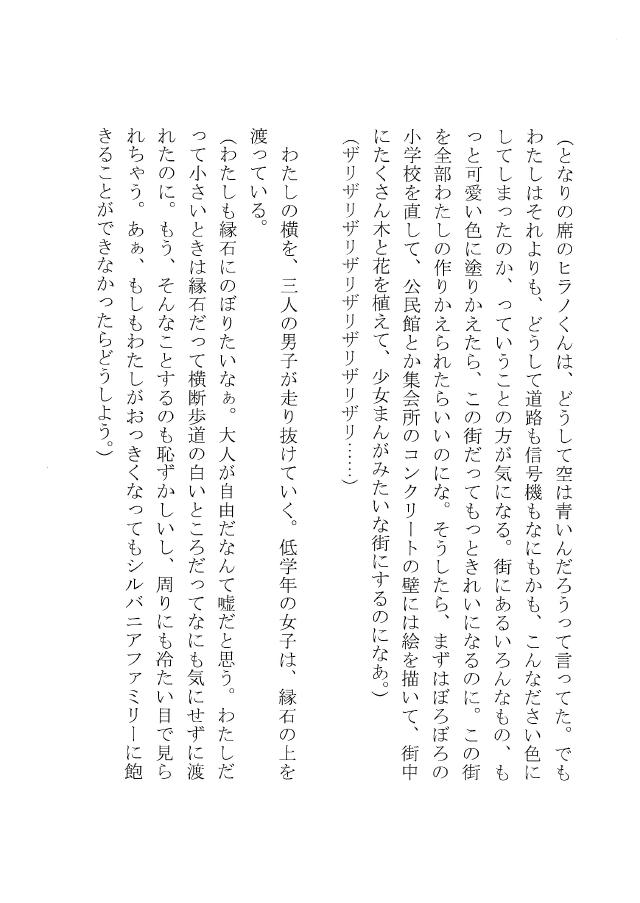 （となりの席のヒラノくんは、どうして空は青いんだろうって言ってた。でも
わたしはそれよりも、どうして道路も信号機もなにもかも、こんなださい色に
してしまったのか、っていうことの方が気になる。街にあるいろんなもの、も
っと可愛い色に塗りかえたら、この街だってもっときれいになるのに。この街
を全部わたしの作りかえられたらいいのにな。そうしたら、まずはぼろぼろの
小学校を直して、公民館とか集会所のコンクリートの壁には絵を描いて、街中
にたくさん木と花を植えて、少女まんがみたいな街にするのになあ。）
（ザリザリザリザリザリザリザリザリ……）
わたしの横を、三人の男子が走り抜けていく。低学年の女子は、縁石の上を
渡っている。
（わたしも縁石にのぼりたいなぁ。大人が自由だなんて嘘だと思う。わたしだ
って小さいときは縁石だって横断歩道の白いところだってなにも気にせずに渡
れたのに。もう、そんなことするのも恥ずかしいし、周りにも冷たい目で見ら
れちゃう。あぁ、もしもわたしがおっきくなってもシルバニアファミリーに飽
きることができなかったらどうしよう。）